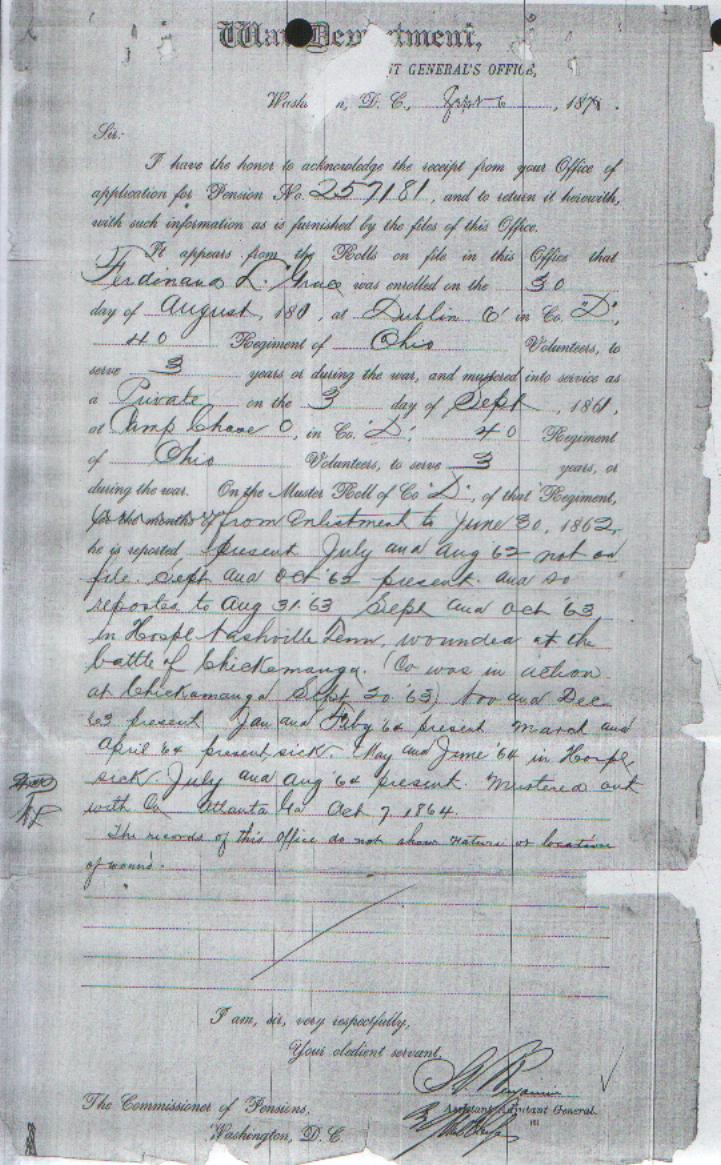 War Department,
GENERAL'S OFFICE,
Washn, D. C., 187
Sir:
I have the honor to acknowledge the receipt from your Office of
application for Pension No. 257181, and to return it herewith,
with such information as is furnished by the files of this Office.
It appears from the Rolls on file in this Office that
Ferdinand L. was enrolled on the 30
day of August, 1861, at Dublin O in Co. "D",
40 Regiment of Ohio Volunteers, to
serve 3 years or during the war, and mustered into service as
a Private on the 3 day of Sept, 1861,
at Camp Chase O, in Co. "D", 40 Regiment
of Ohio Volunteers, to serve 3 years, or
during the war. On the Muster Roll of Co "D", of that Regiment,
for the months of from Enlistment to June 30, 1862,
he is reported present July and Aug '62 not on
file. Sept and Oct '62 present. and so
reported to Aug 31 '63 Sept and Oct '63
in Hospl Nashville Tenn, wounded at the
battle of Chickamauga. (Co was in action
at Chickamauga Sept 20 '63) Nov and Dec
63 present Jan and Feby '64 present March and
April '64 present, sick. May and June '64 in Hospl,
sick. July and Aug '64 present. Mustered out
with Co Atlanta Ga Oct 7 1864.
The records of this Office do not show nature or location
of wound.
I am, sir, very respectfully,
Your obedient servant,
Assistant Adjutant General.
The Commissioner of Pensions,
Washington, D. C.